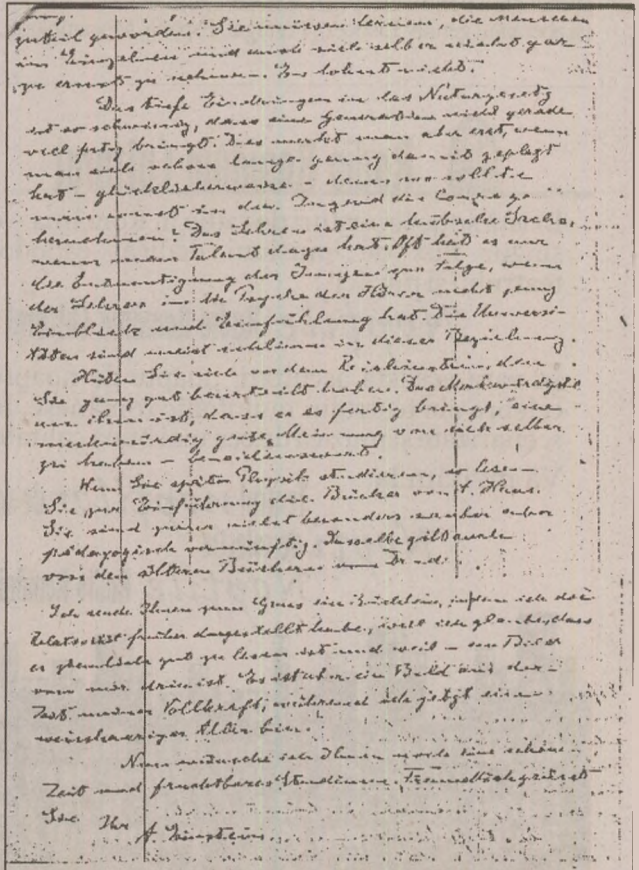 zuteil geworden. Sie müssen lernen, die Menschen
im Einzelnen und auch sich selber nicht gar
zu ernst zu nehmen. Es lohnt nicht.
Das tiefe Eindringen in das Naturgesetz
ist so schwierig, dass eine Generation nicht gerade
viel fertig bringt. Dies merkt man aber erst, wenn
man sich schon lange genug damit geplagt
hat – glücklicherweise – denn wo sollte
man sonst in der Jugend die Courage
hernehmen? Das Lehren ist eine hübsche Sache,
wenn man Talent dazu hat. Oft hat es nur
die Entmutigung der Jungen zur Folge, wenn
der Lehrer in die Psyche der Hörer nicht genug
Einblick und Einfühlung hat. Die Universi-
täten sind meist schlimm in dieser Beziehung.
Hüten Sie sich vor dem den
Sie ganz gut beurteilt haben. Das Merkwürdigste
an ihm ist, dass er es fertig bringt, eine
merkwürdig gute Meinung von sich selber
zu haben – beneidenswert.
Wenn Sie später Physik studieren, so lesen
Sie zur Einführung die Bücher von A. Haas.
Sie sind zwar nicht besonders sauber aber
pädagogisch vernünftig. Dasselbe gilt auch
von den älteren Büchern von
Ich sende Ihnen zum Gruss ein Büchlein, in dem ich die
Relativität früher dargestellt habe, weil ich glaube, dass
es ziemlich gut zu lesen ist und weil – ein Bild
von mir drin ist. Es ist aber ein Bild aus der
Zeit meiner Vollkraft, während ich jetzt ein
weisshaariger Alter bin.
Nun wünsche ich Ihnen noch eine schöne
Zeit und fruchtbares Studium. Freundlich grüsst
Sie Ihr
A. Einstein.